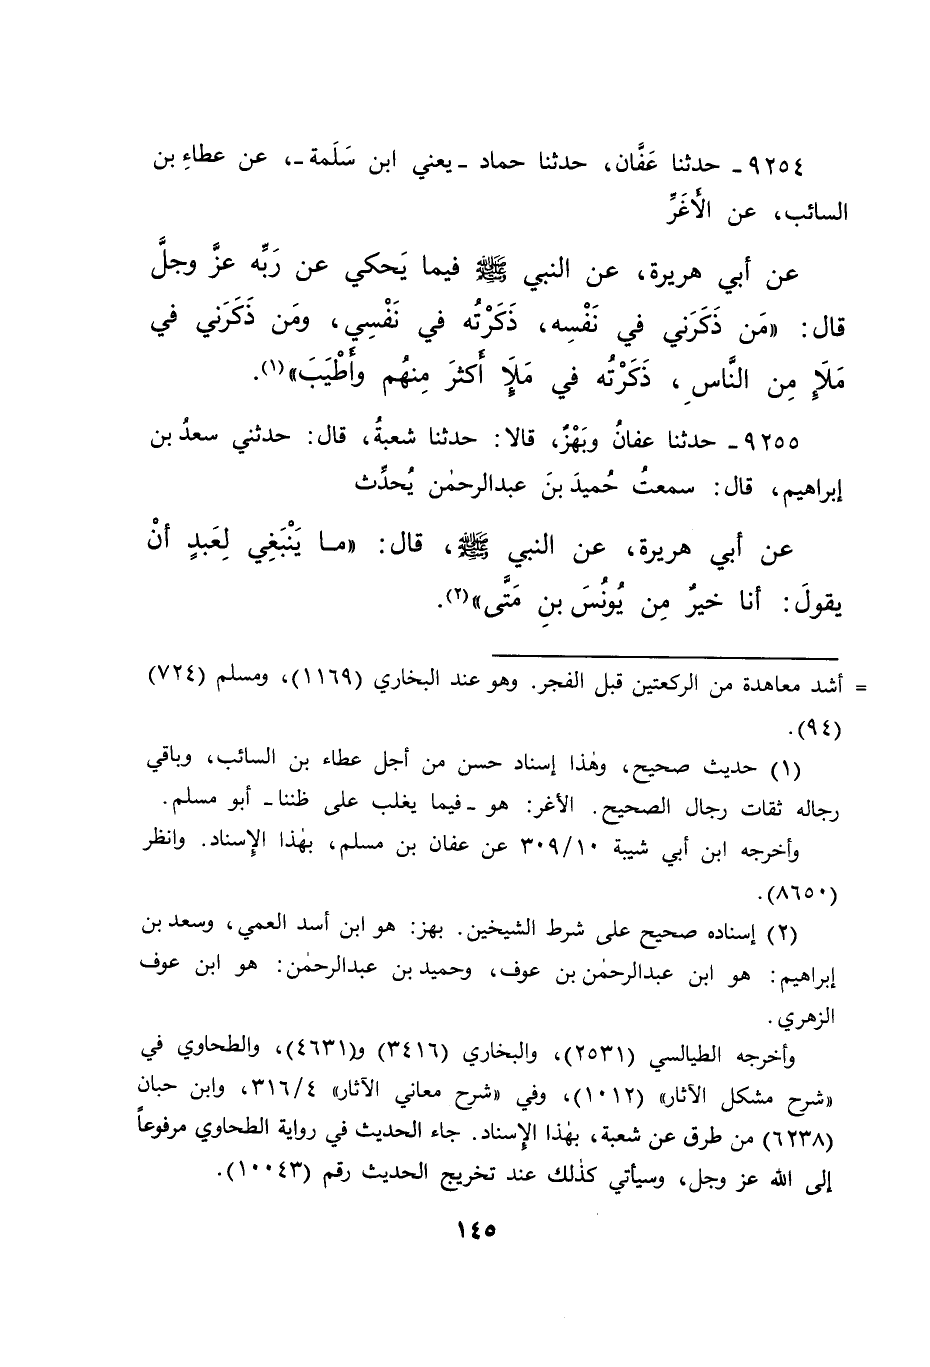 ٩٢٥٤ـ حدثنا عَفَّان، حدثنا حماد ـيعني ابن سَلَمة ـ، عن عطاءِ بن
السائب، عن الأَغَرِّ
عن أبي هريرة، عن النبي ﷺ فيما يَحكي عن رَبِّه عزَّ وجلَّ
قال: «مَن ذَكَرَني في نَفْسِه، ذَكَرْتُه في نَفْسِي، ومَن ذَكَرَني في
مَلَإٍ مِن النَّاسِ، ذَكَرْتُه في مَلَإٍ أَكثرَ مِنهُم وأَطْيَبَ»(١).
٩٢٥٥ـ حدثنا عفانُ وبَهْزٌ، قالا: حدثنا شعبةُ، قال: حدثني سعدُ بن
إبراهيم، قال: سمعتُ حُميدَ بنَ عبدالرحمٰن يُحدِّث
عن أبي هريرة، عن النبي ﷺ، قال: «ما يَنْبَغِي لِعَبدٍ أنْ
يقولَ: أنا خيرٌ مِن يُونُسَ بنِ مَتَّى»(٢).
= أشد معاهدة من الركعتين قبل الفجر. وهو عند البخاري (١١٦٩)، ومسلم (٧٢٤)
(٩٤).
(١) حديث صحيح، وهٰذا إسناد حسن من أجل عطاء بن السائب، وباقي
رجاله ثقات رجال الصحيح. الأغر: هو ـفيما يغلب على ظنناـ أبو مسلم.
وأخرجه ابن أبي شيبة ٣٠٩/١٠ عن عفان بن مسلم، بهٰذا الإسناد. وانظر
(٨٦٥٠).
(٢) إسناده صحيح على شرط الشيخين. بهز: هو ابن أسد العمي، وسعد بن
إبراهيم: هو ابن عبدالرحمٰن بن عوف، وحميد بن عبدالرحمٰن: هو ابن عوف
الزهري.
وأخرجه الطيالسي (٢٥٣١)، والبخاري (٣٤١٦) و(٤٦٣١)، والطحاوي في
«شرح مشكل الآثار» (١٠١٢)، وفي «شرح معاني الآثار» ٣١٦/٤، وابن حبان
(٦٢٣٨) من طرق عن شعبة، بهٰذا الإسناد. جاء الحديث في رواية الطحاوي مرفوعاً
إلى الله عز وجل، وسيأتي كذٰلك عند تخريج الحديث رقم (١٠٠٤٣).
١٤٥